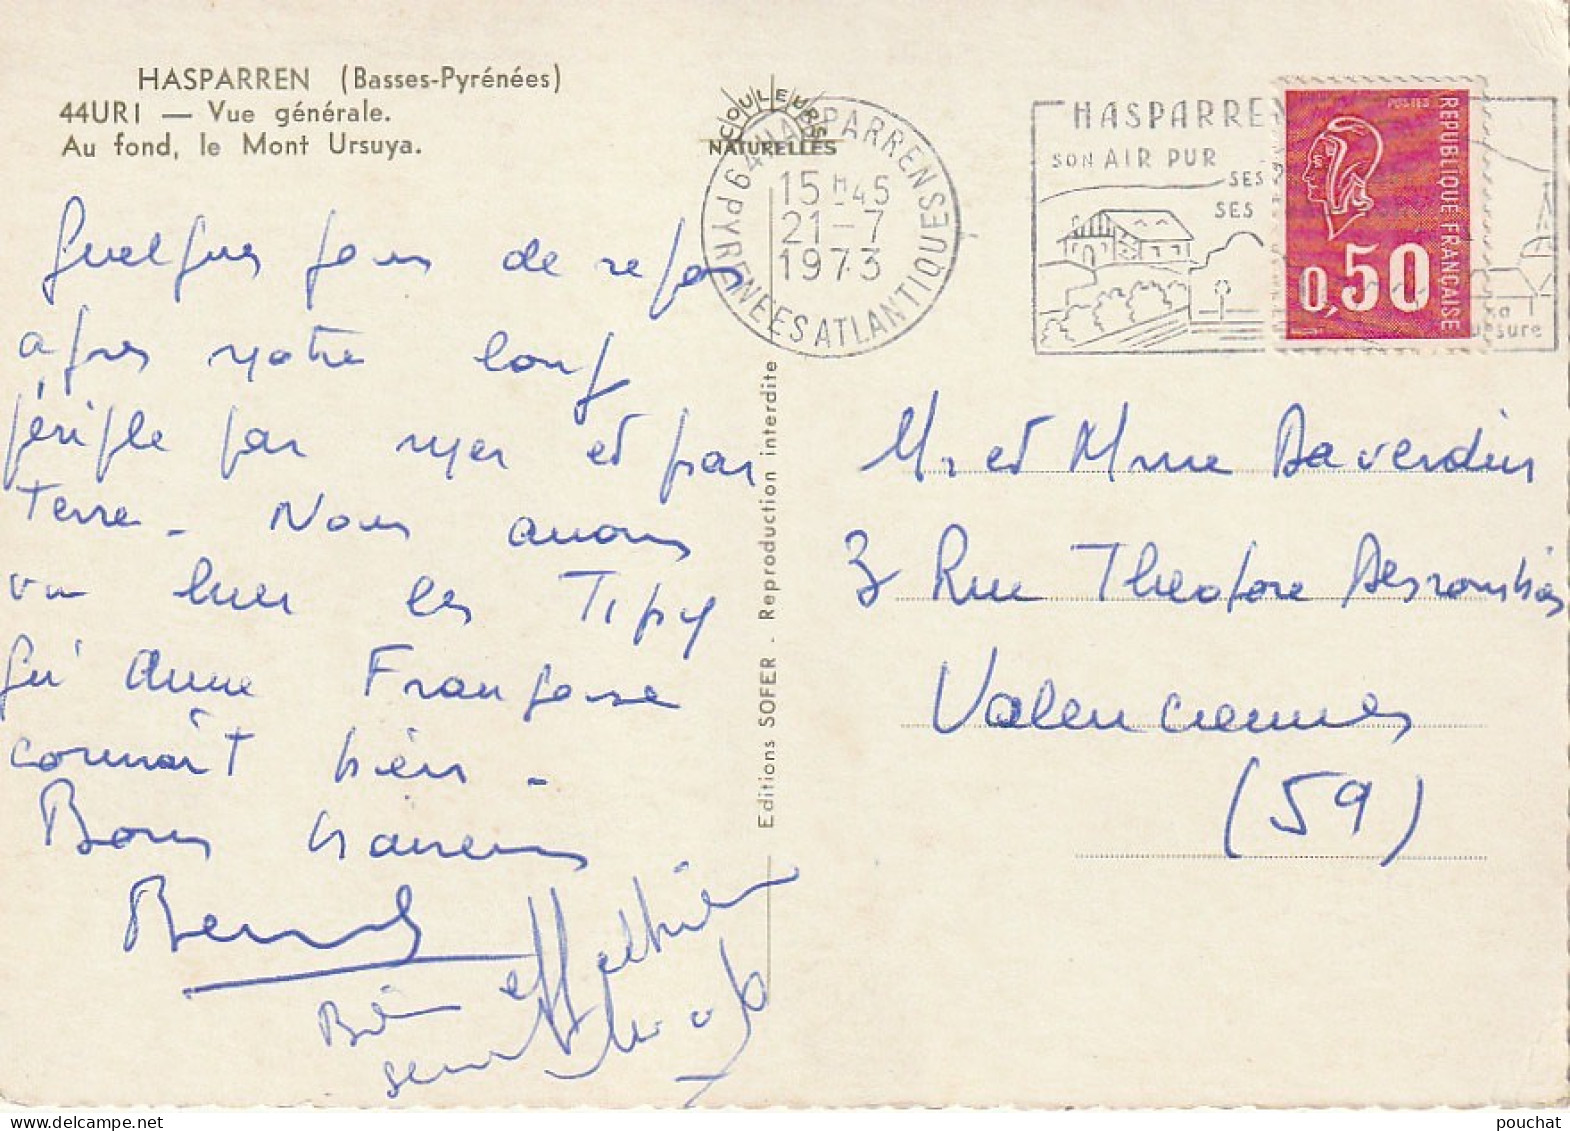 HASPARREN (Basses-Pyrénées)
44URI — Vue générale.
Au fond, le Mont Ursuya.
COULEURS
NATURELLES
64 HASPARREN
PYRENEES ATLANTIQUES
15H45
21-7
1973
HASPARREN
SON AIR PUR
SES
SES
POSTES
REPUBLIQUE FRANÇAISE
0,50
Quelques jours de repos
après notre long
périple par mer et par
terre. Nous avons
vu hier les Tipy
qu'Anne Françoise
connaît bien.
Bons baisers
Editions SOFER - Reproduction interdite
Mr et Mme Daverdin
3 Rue Theodore Desrombies
Valenciennes
(59)
pouchat